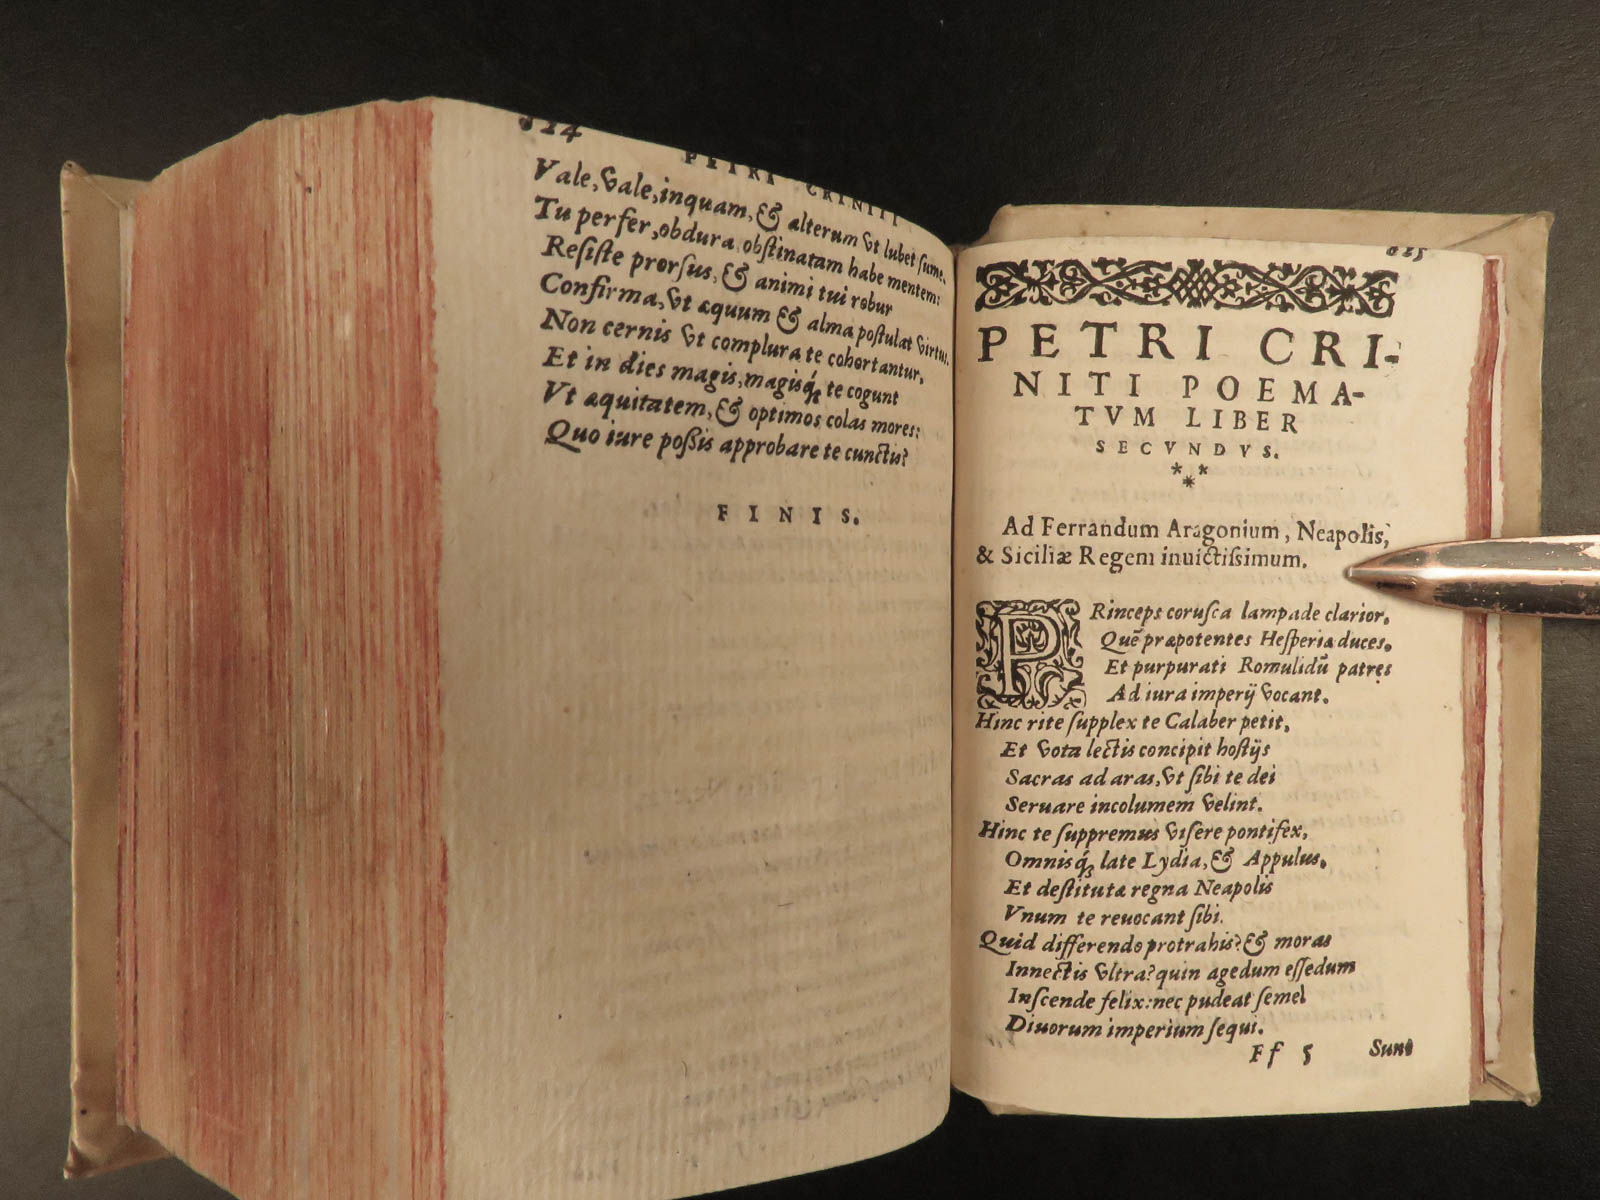 824
PETRI CRINITI
Vale, vale, inquam, & alterum vt lubet ſume.
Tu perfer, obdura obſtinatam habe mentem:
Reſiſte prorſus, & animi tui robur
Confirma, vt æquum & alma poſtulat virtus.
Non cernis vt complura te cohortantur,
Et in dies magis, magisq́; te cogunt
Vt æquitatem, & optimos colas mores:
Quo iure poßis approbare te cunctis?
FINIS.
825
PETRI CRI-
NITI POEMA-
TVM LIBER
SECVNDVS.
* *
*
Ad Ferrandum Aragonium, Neapolis,
& Siciliæ Regem inuictiſsimum.
PRinceps coruſca lampade clarior,
Quē præpotentes Heſperiæ duces,
Et purpurati Romulidū patres
Ad iura imperij vocant.
Hinc rite ſupplex te Calaber petit,
Et vota lectis concipit hoſtijs
Sacras ad aras, vt ſibi te dei
Seruare incolumem velint.
Hinc te ſuppremus viſere pontifex,
Omnisq́; late Lydia, & Appulus,
Et deſtituta regna Neapolis
Vnum te reuocant ſibi.
Quid differendo protrahis? & moras
Innectis vltra? quin agedum eſſedum
Inſcende felix: nec pudeat ſemel
Diuorum imperium ſequi.
Ff 5 Sunt